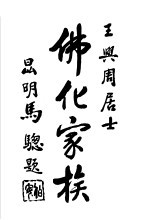 王興周居士
佛化家族
昆明馬驄題